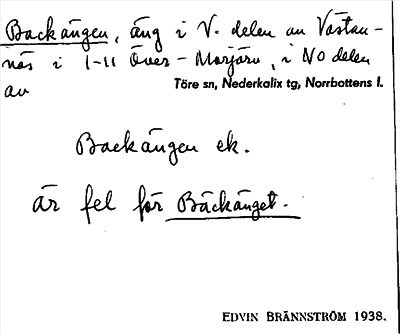 Backängen, äng i V. delen av Västan-
näs i 1-11 Över-Morjärv, i NO delen
Töre sn, Nederkalix tg, Norrbottens l.
av
Backängen ek.
är fel för Bäckänget.
EDVIN BRÄNNSTRÖM 1938.